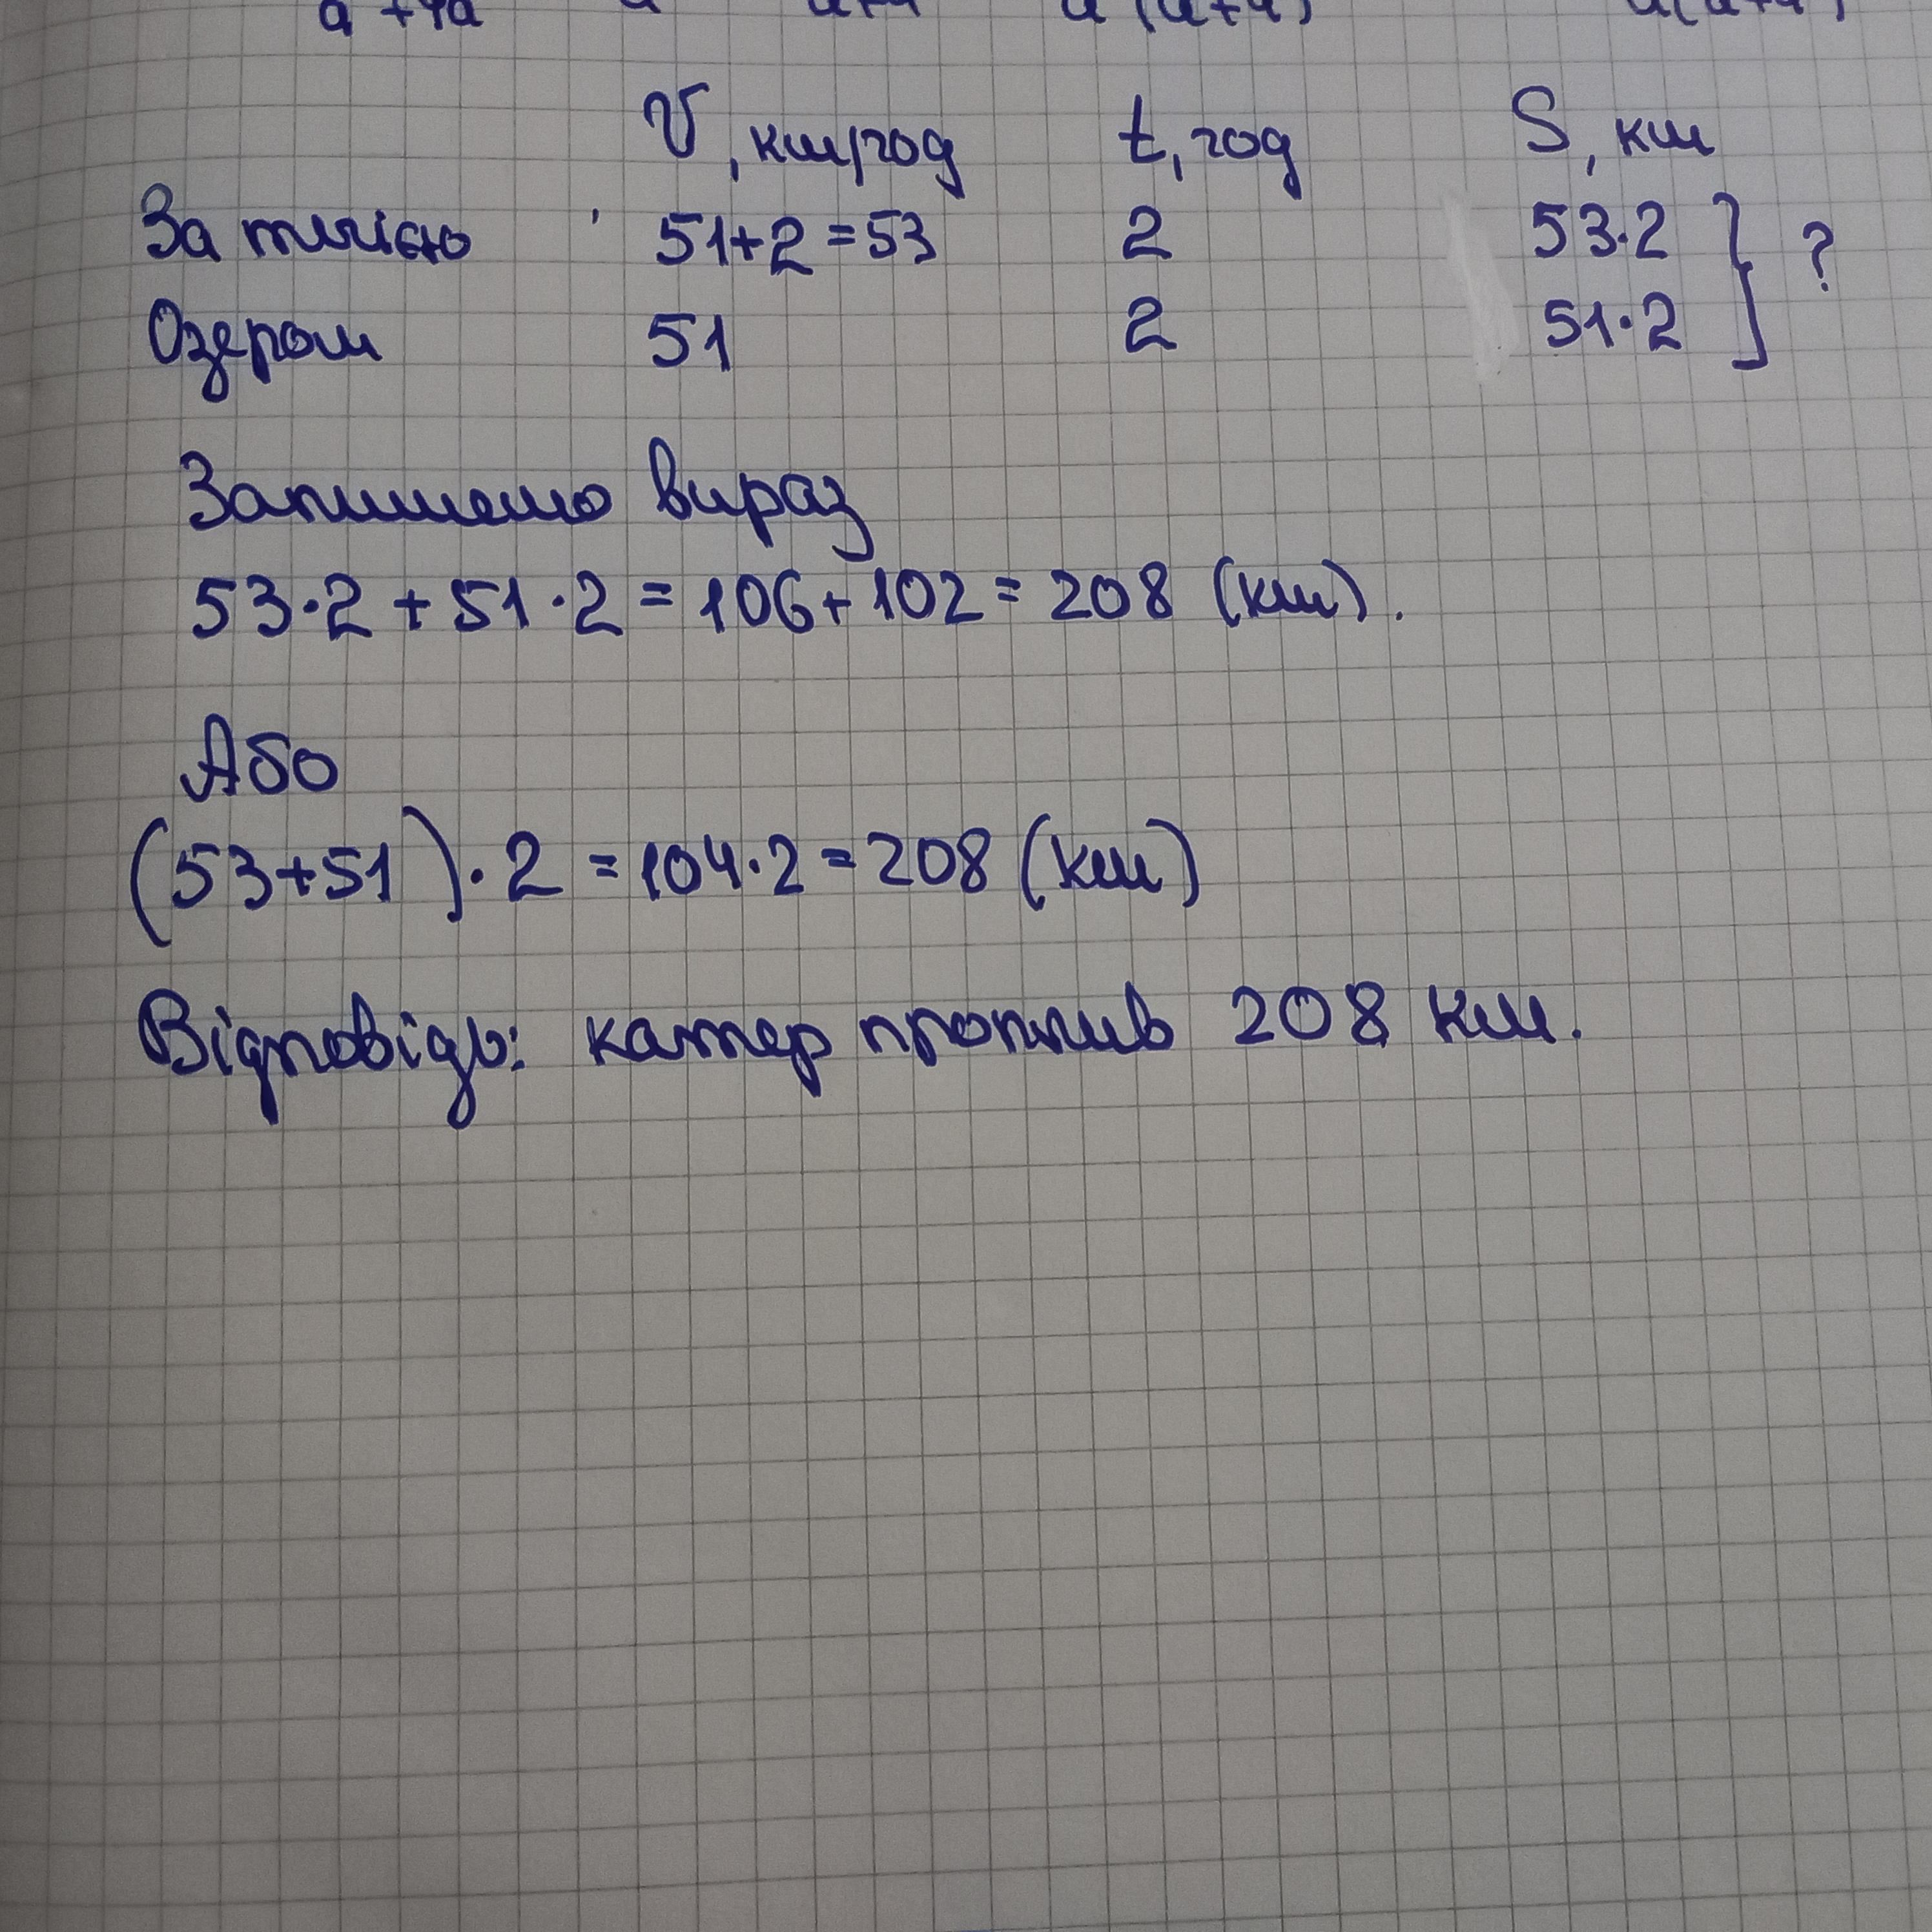 V, км/год t, год S, км
За течією 51+2=53 2 53·2 } ?
Озером 51 2 51·2
Запишемо вираз
53·2 + 51·2 = 106 + 102 = 208 (км).
Або
(53+51)·2 = 104·2 = 208 (км)
Відповідь: катер проплив 208 км.